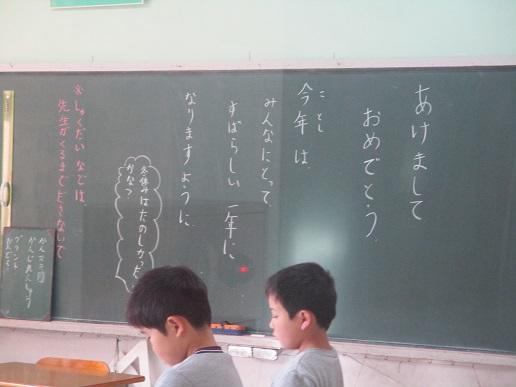 あけまして
おめでとう
ことし
今年は
みんなにとって
すばらしい一年に
なりますように
冬休みはたのしかった
かな?
※しゅくだいなどは、
先生がくるまでださないで
かんじれんしゅう
プリント